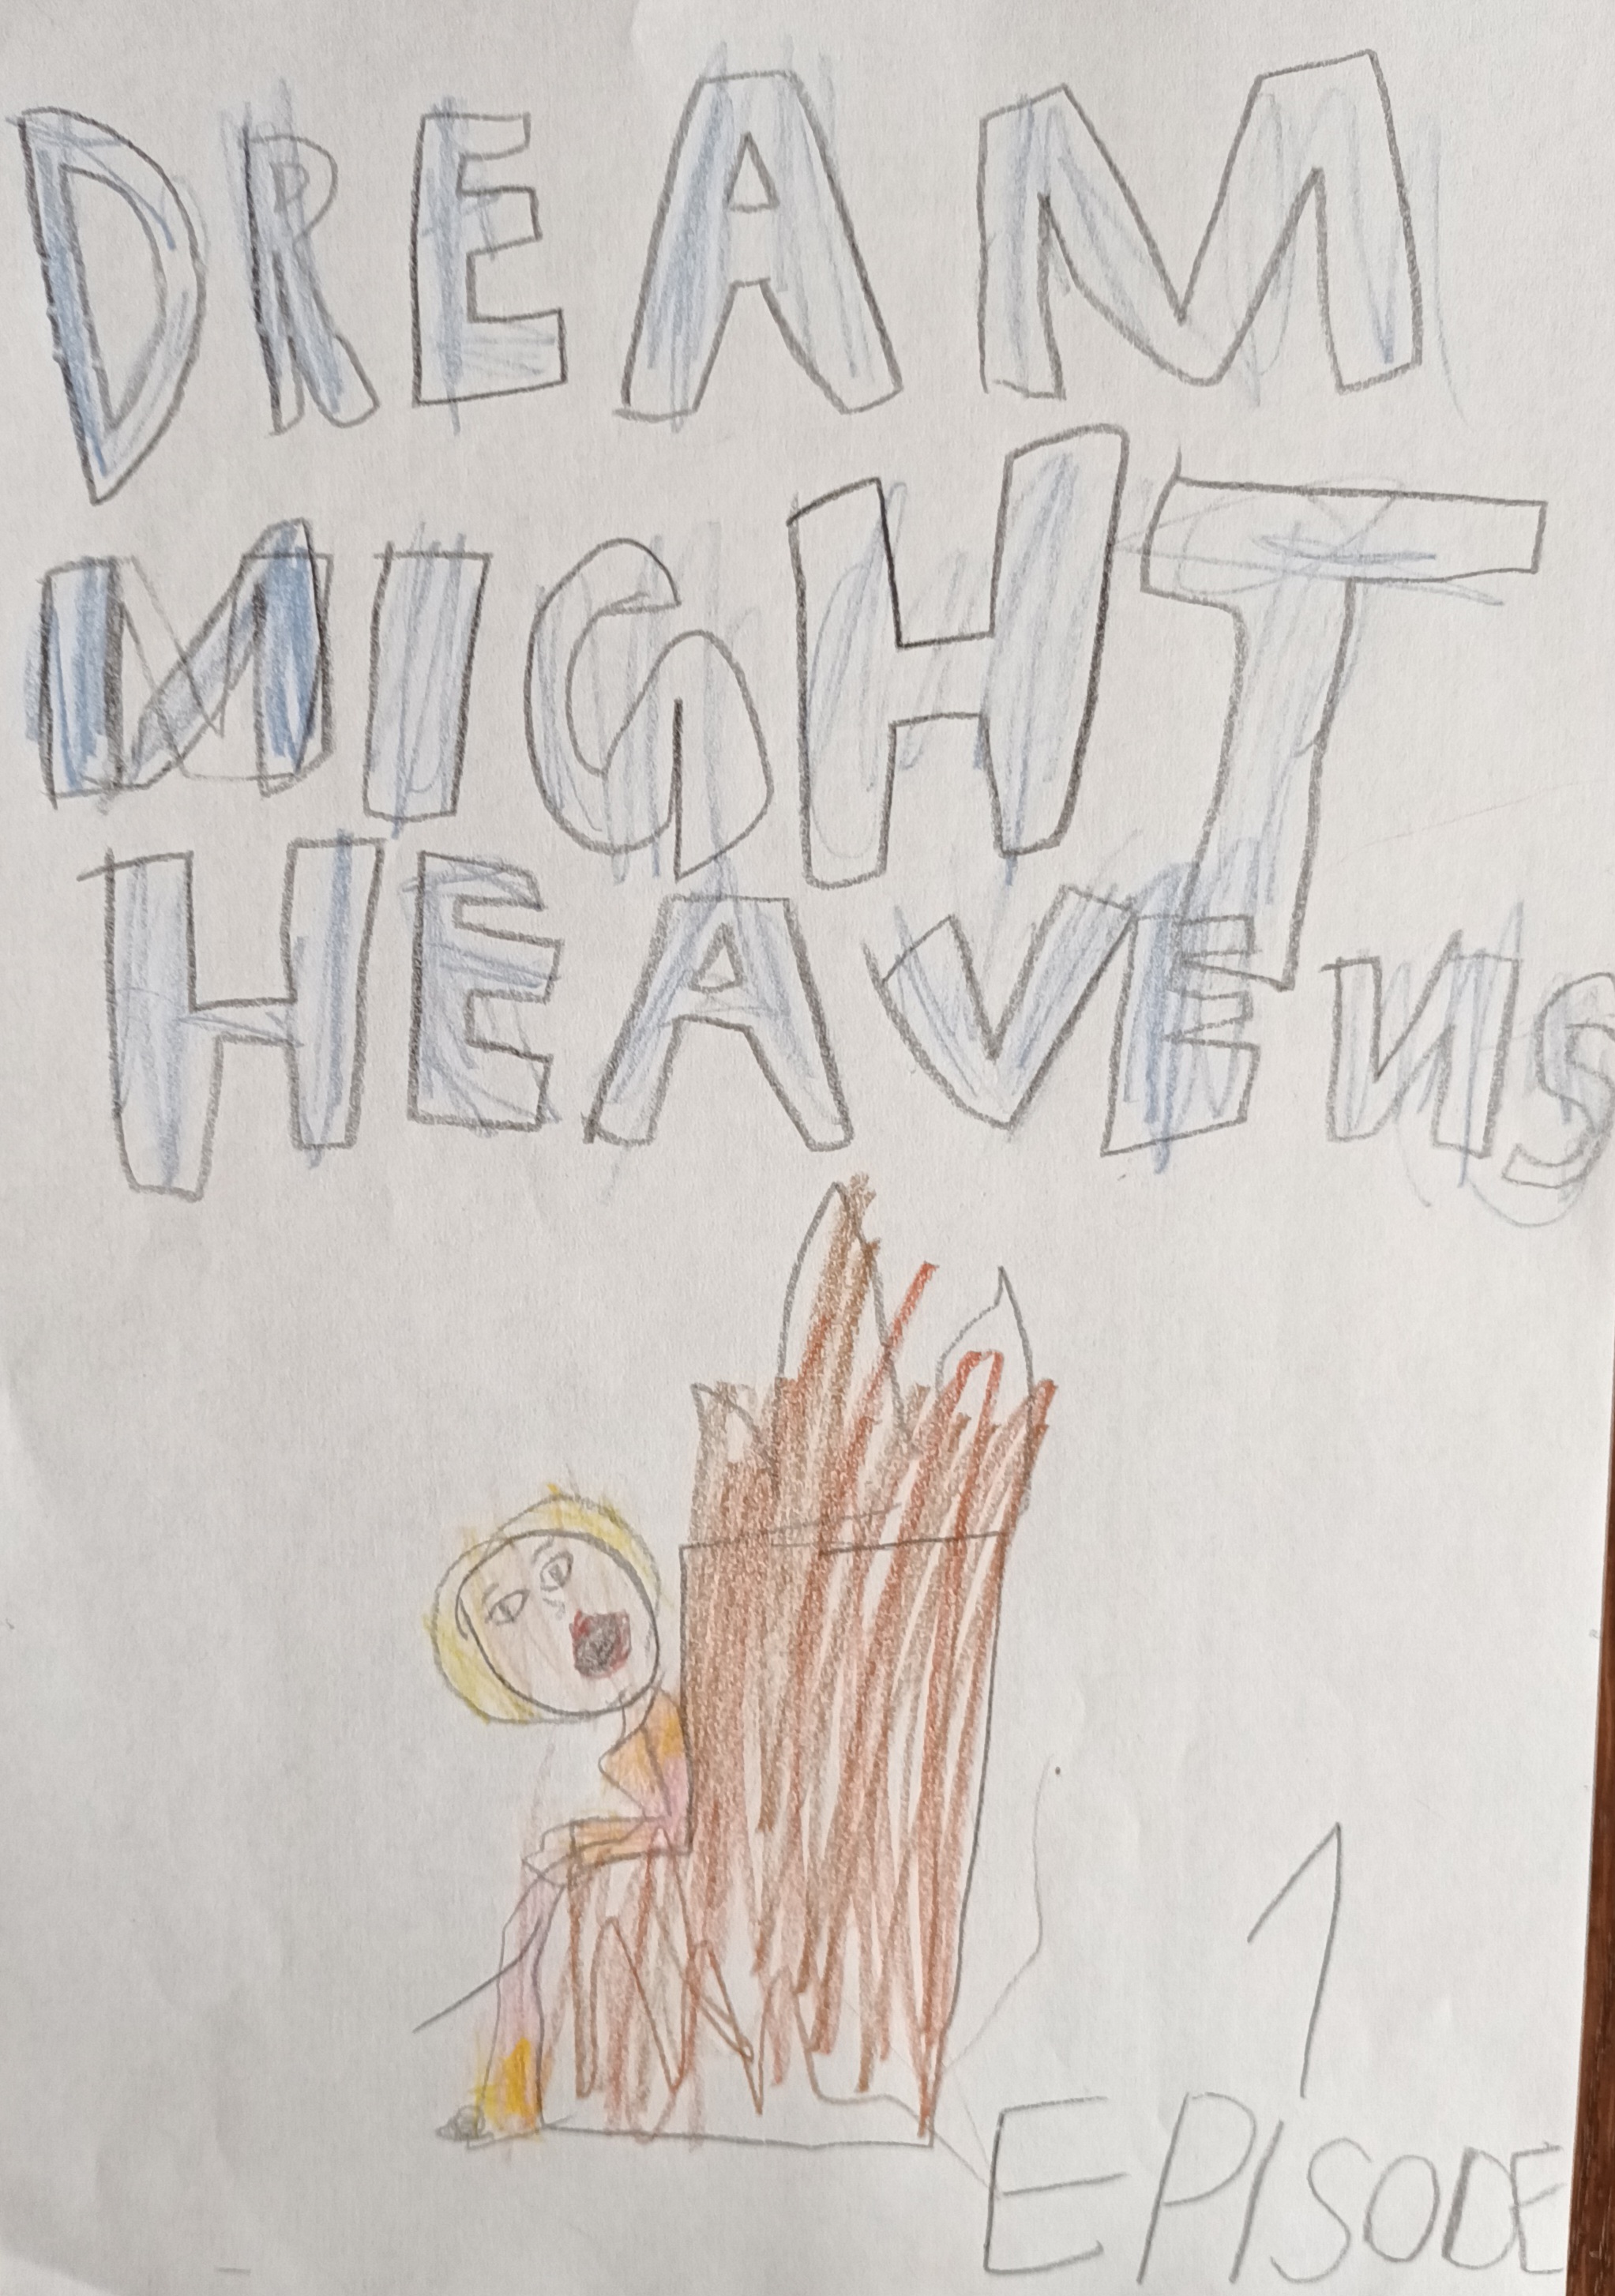 DREAM
MIGHT
HEAVENS
1
EPISODE